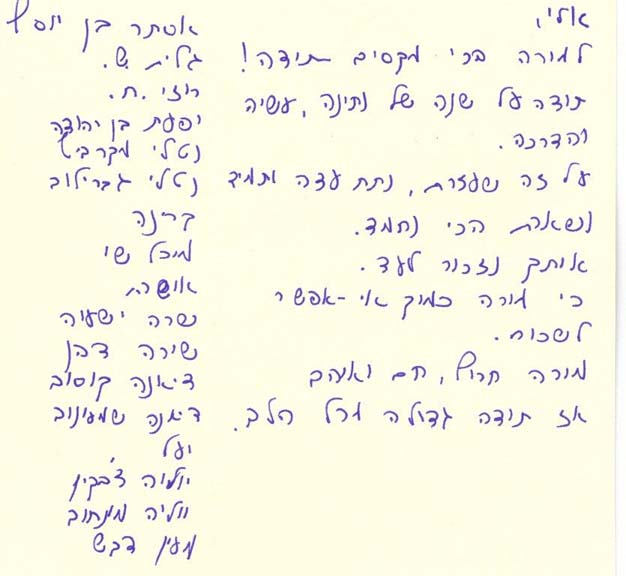 אלי,
למורה הכי מקסים תודה!
תודה על שנה של נתינה, עשיה
והדרכה.
על זה שעזרת, נתת עצה ותמיד
נשארת הכי נחמד.
אותך נזכור לעד.
כי מורה כמוך אי-אפשר
לשכוח.
מורה חרוץ, חם ואוהב
אז תודה גדולה מכל הלב.
אסתר בן יוסף
גלית ש.
רוזי .ח.
יפעת בן יהודה
נטלי מקרביש
נטלי גברילוב
ברנה
מיכל שי
אושרת
שרה ישעיה
שירה דהן
דיאנה קוסוב
דיאנה שמעינוב
יעל
יוליה צ'בקין
יוליה
מעין דבש